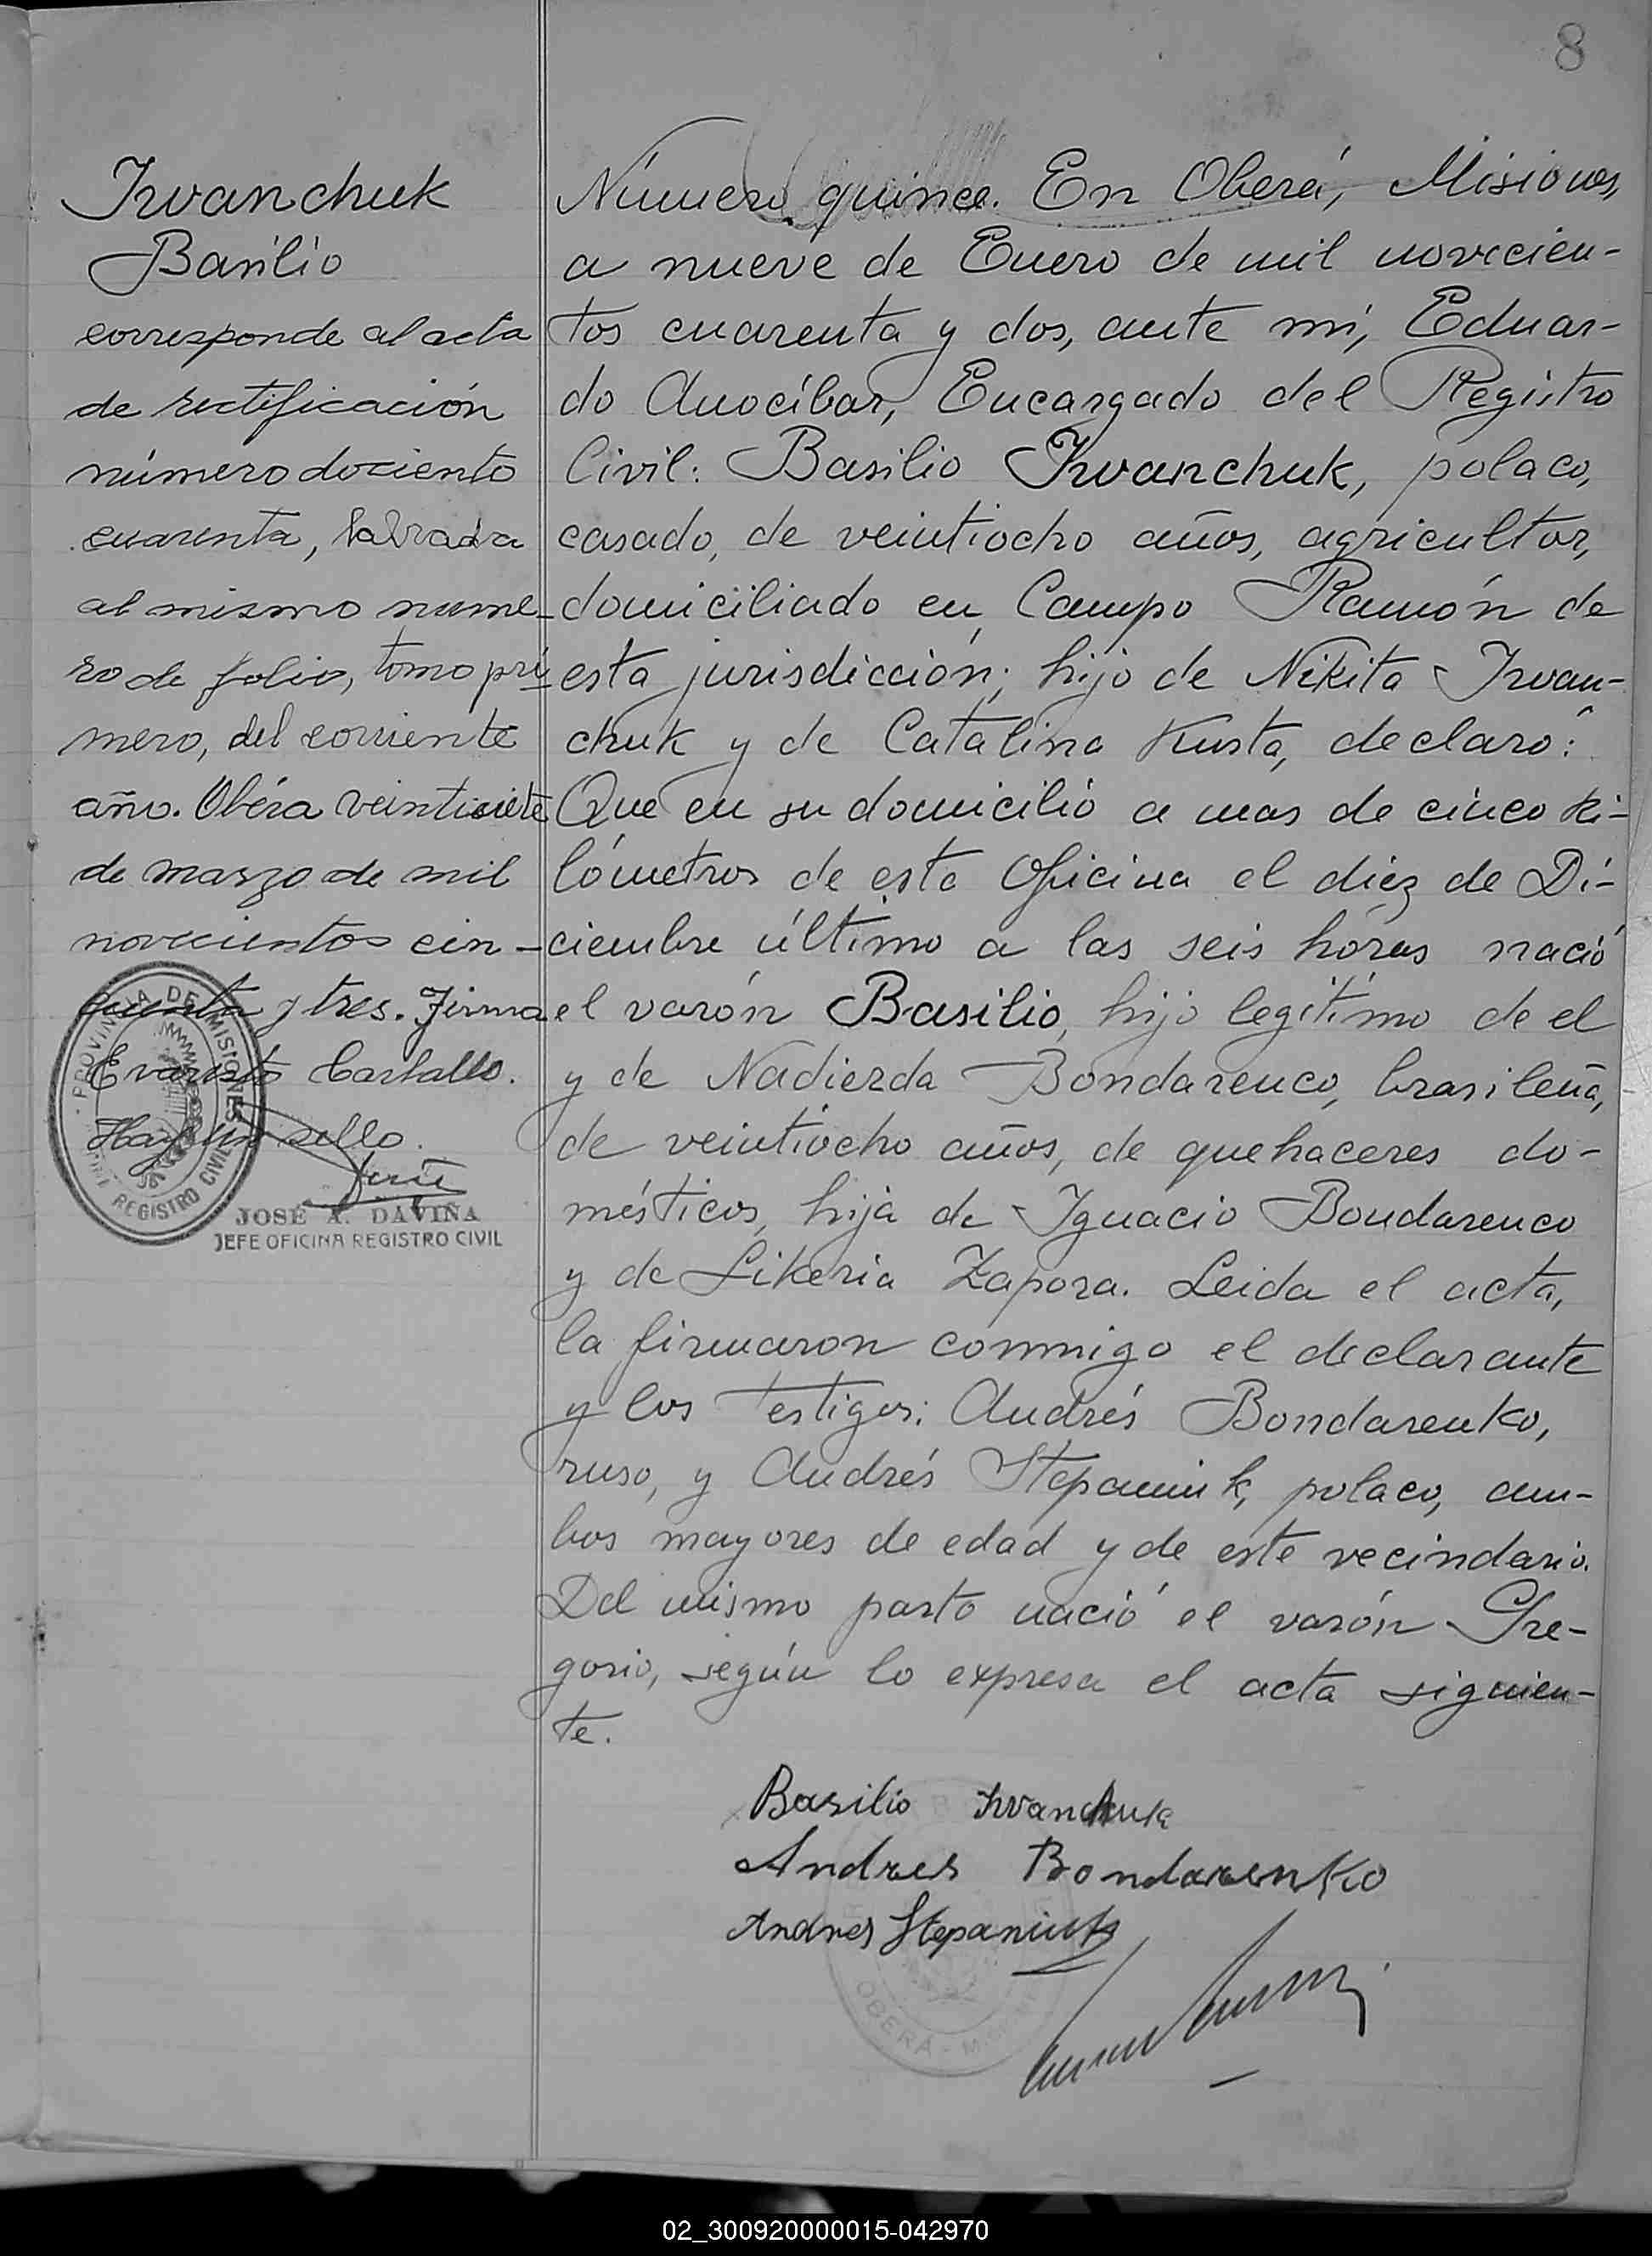 8
Iwanchuk
Basilio
corresponde al acta
de rectificación
número dociento
cuarenta, labrada
al mismo nume-
ro de folio, tomo pri-
mero, del corriente
año. Obéra veintisiete
de marzo de mil
novecientos cin-
cuenta y tres. Firma
Evaristo Carballo.
Hay un sello.
PROVINCIA DE MISIONES
REGISTRO CIVIL
JOSÉ A. DAVIÑA
JEFE OFICINA REGISTRO CIVIL
Número quince. En Oberá, Misiones,
a nueve de Enero de mil novecien-
tos cuarenta y dos, ante mí, Eduar-
do Anocíbar, Encargado del Registro
Civil: Basilio Iwanchuk, polaco,
casado, de veintiocho años, agricultor,
domiciliado en Campo Ramón de
esta jurisdicción; hijo de Nikita Iwan-
chuk y de Catalina Kusta, declaró:
Que en su domicilio a mas de cinco ki-
lómetros de esta Oficina el diez de Di-
ciembre último a las seis horas nació
el varón Basilio, hijo legítimo de el
y de Nadierda Bondarenco, brasileña,
de veintiocho años, de quehaceres do-
mésticos, hija de Ignacio Bondarenco
y de Likeria Zapora. Leida el acta,
la firmaron conmigo el declarante
y los testigos: Andrés Bondarenko,
ruso, y Andrés Stepaniuk, polaco, am-
bos mayores de edad y de este vecindario.
Del mismo parto nació el varón Gre-
gorio, según lo expresa el acta siguien-
te.
Basilio Iwanchuk
Andres Bondarenko
Andres Stepaniuk
OBERÁ
02_300920000015-042970